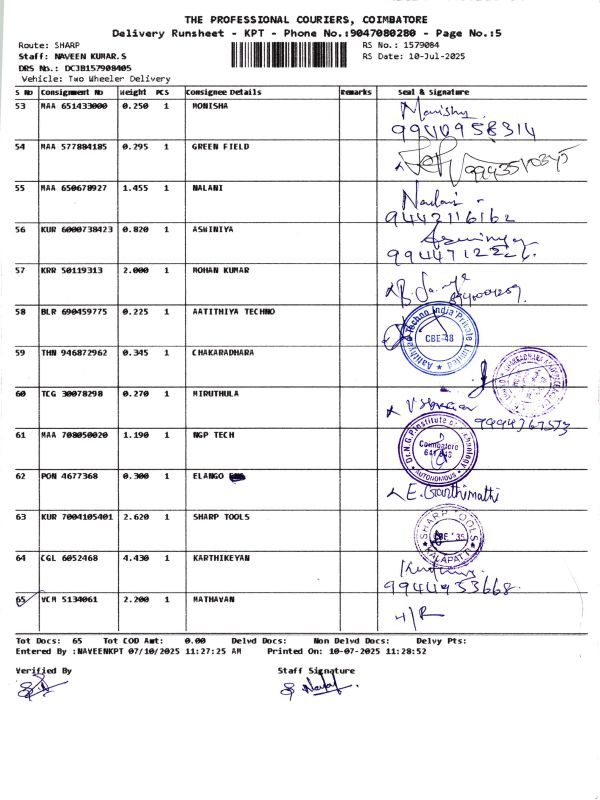 THE PROFESSIONAL COURIERS, COIMBATORE
Delivery Runsheet - KPT - Phone No.:9047080280 - Page No.:5
Route: SHARP RS No.: 1579084
Staff: NAVEEN KUMAR.S RS Date: 10-Jul-2025
DRS No.: DCJB157908405
Vehicle: Two Wheeler Delivery
S No Consignment No Weight PCS Consignee Details Remarks Seal & Signature
53 MAA 651433000 0.250 1 MONISHA Monisha
9940958314
54 MAA 577884185 0.295 1 GREEN FIELD
55 MAA 650678927 1.455 1 NALANI Nalani
9442116162
56 KUR 6000738423 0.820 1 ASWINIYA Aswiniya
57 KRR 50119313 2.000 1 MOHAN KUMAR
58 BLR 690459775 0.225 1 AATITHIYA TECHNO Aatithiya Techno India Private Limited
CBE-48
59 THN 946872962 0.345 1 CHAKARADHARA
60 TCG 30078298 0.270 1 MIRUTHULA
61 MAA 708050020 1.190 1 NGP TECH Dr.N.G.P.Institute of Technology
Coimbatore
641 048
AUTONOMOUS
62 PON 4677368 0.300 1 ELANGO E. Ganthimathi
63 KUR 7004105401 2.620 1 SHARP TOOLS SHARP TOOLS
CBE - 35
KALAPATTI
64 CGL 6052468 4.430 1 KARTHIKEYAN
9944953668
65 VCM 5134061 2.200 1 MATHAVAN H/R
Tot Docs: 65 Tot COD Amt: 0.00 Delvd Docs: Non Delvd Docs: Delvy Pts:
Entered By :NAVEENKPT 07/10/2025 11:27:25 AM Printed On: 10-07-2025 11:28:52
Verified By Staff Signature